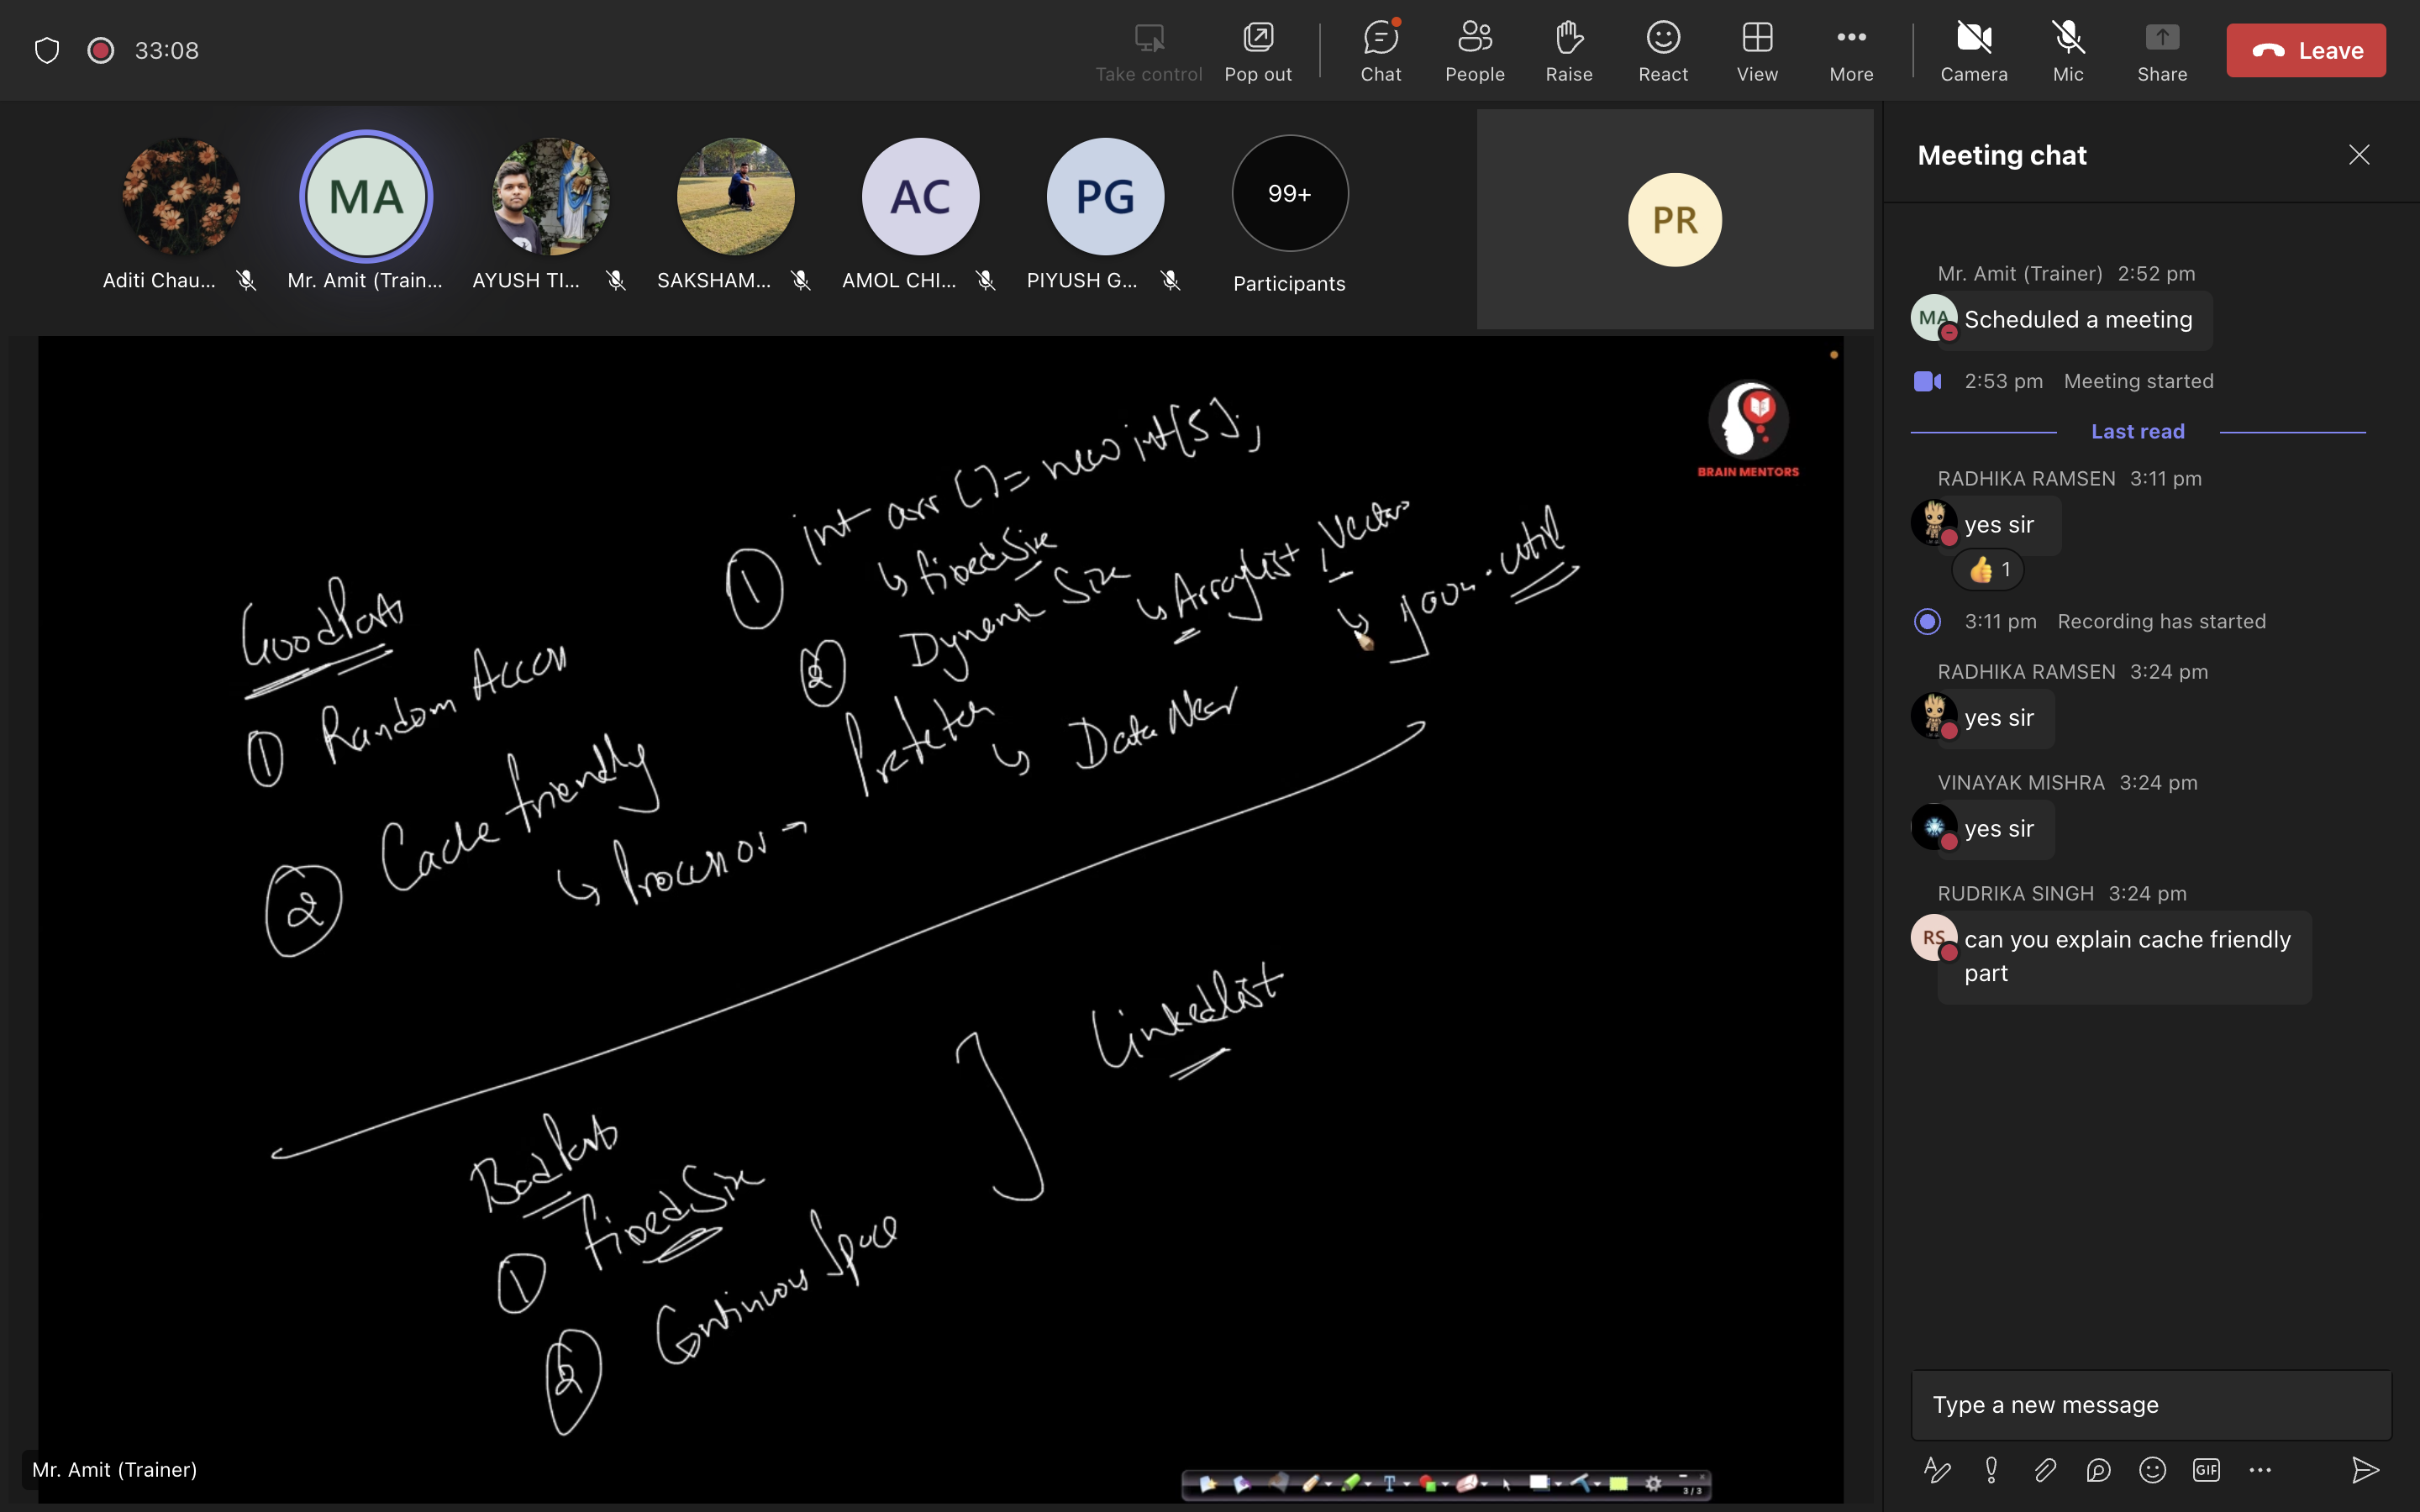 33:08
Take control
Pop out
Chat
People
Raise
React
View
More
Camera
Mic
Share
Leave
MA
AC
PG
99+
PR
Aditi Chau...
Mr. Amit (Train...
AYUSH TI...
SAKSHAM...
AMOL CHI...
PIYUSH G...
Participants
BRAIN MENTORS
int arr[] = new int[5];
↳ fixed Size
② Dynamic Size ↳ ArrayList, Vector
↳ java.util
①
Good Parts
① Random Access
② Cache friendly
↳ Processor →
Prefetch
↳ Data Near
Bad Parts
① Fixed Size
② Continuous Space
LinkedList
Mr. Amit (Trainer)
3/3
Meeting chat
Mr. Amit (Trainer) 2:52 pm
MA
Scheduled a meeting
2:53 pm Meeting started
Last read
RADHIKA RAMSEN 3:11 pm
yes sir
👍 1
3:11 pm Recording has started
RADHIKA RAMSEN 3:24 pm
yes sir
VINAYAK MISHRA 3:24 pm
yes sir
RUDRIKA SINGH 3:24 pm
RS
can you explain cache friendly
part
Type a new message
GIF